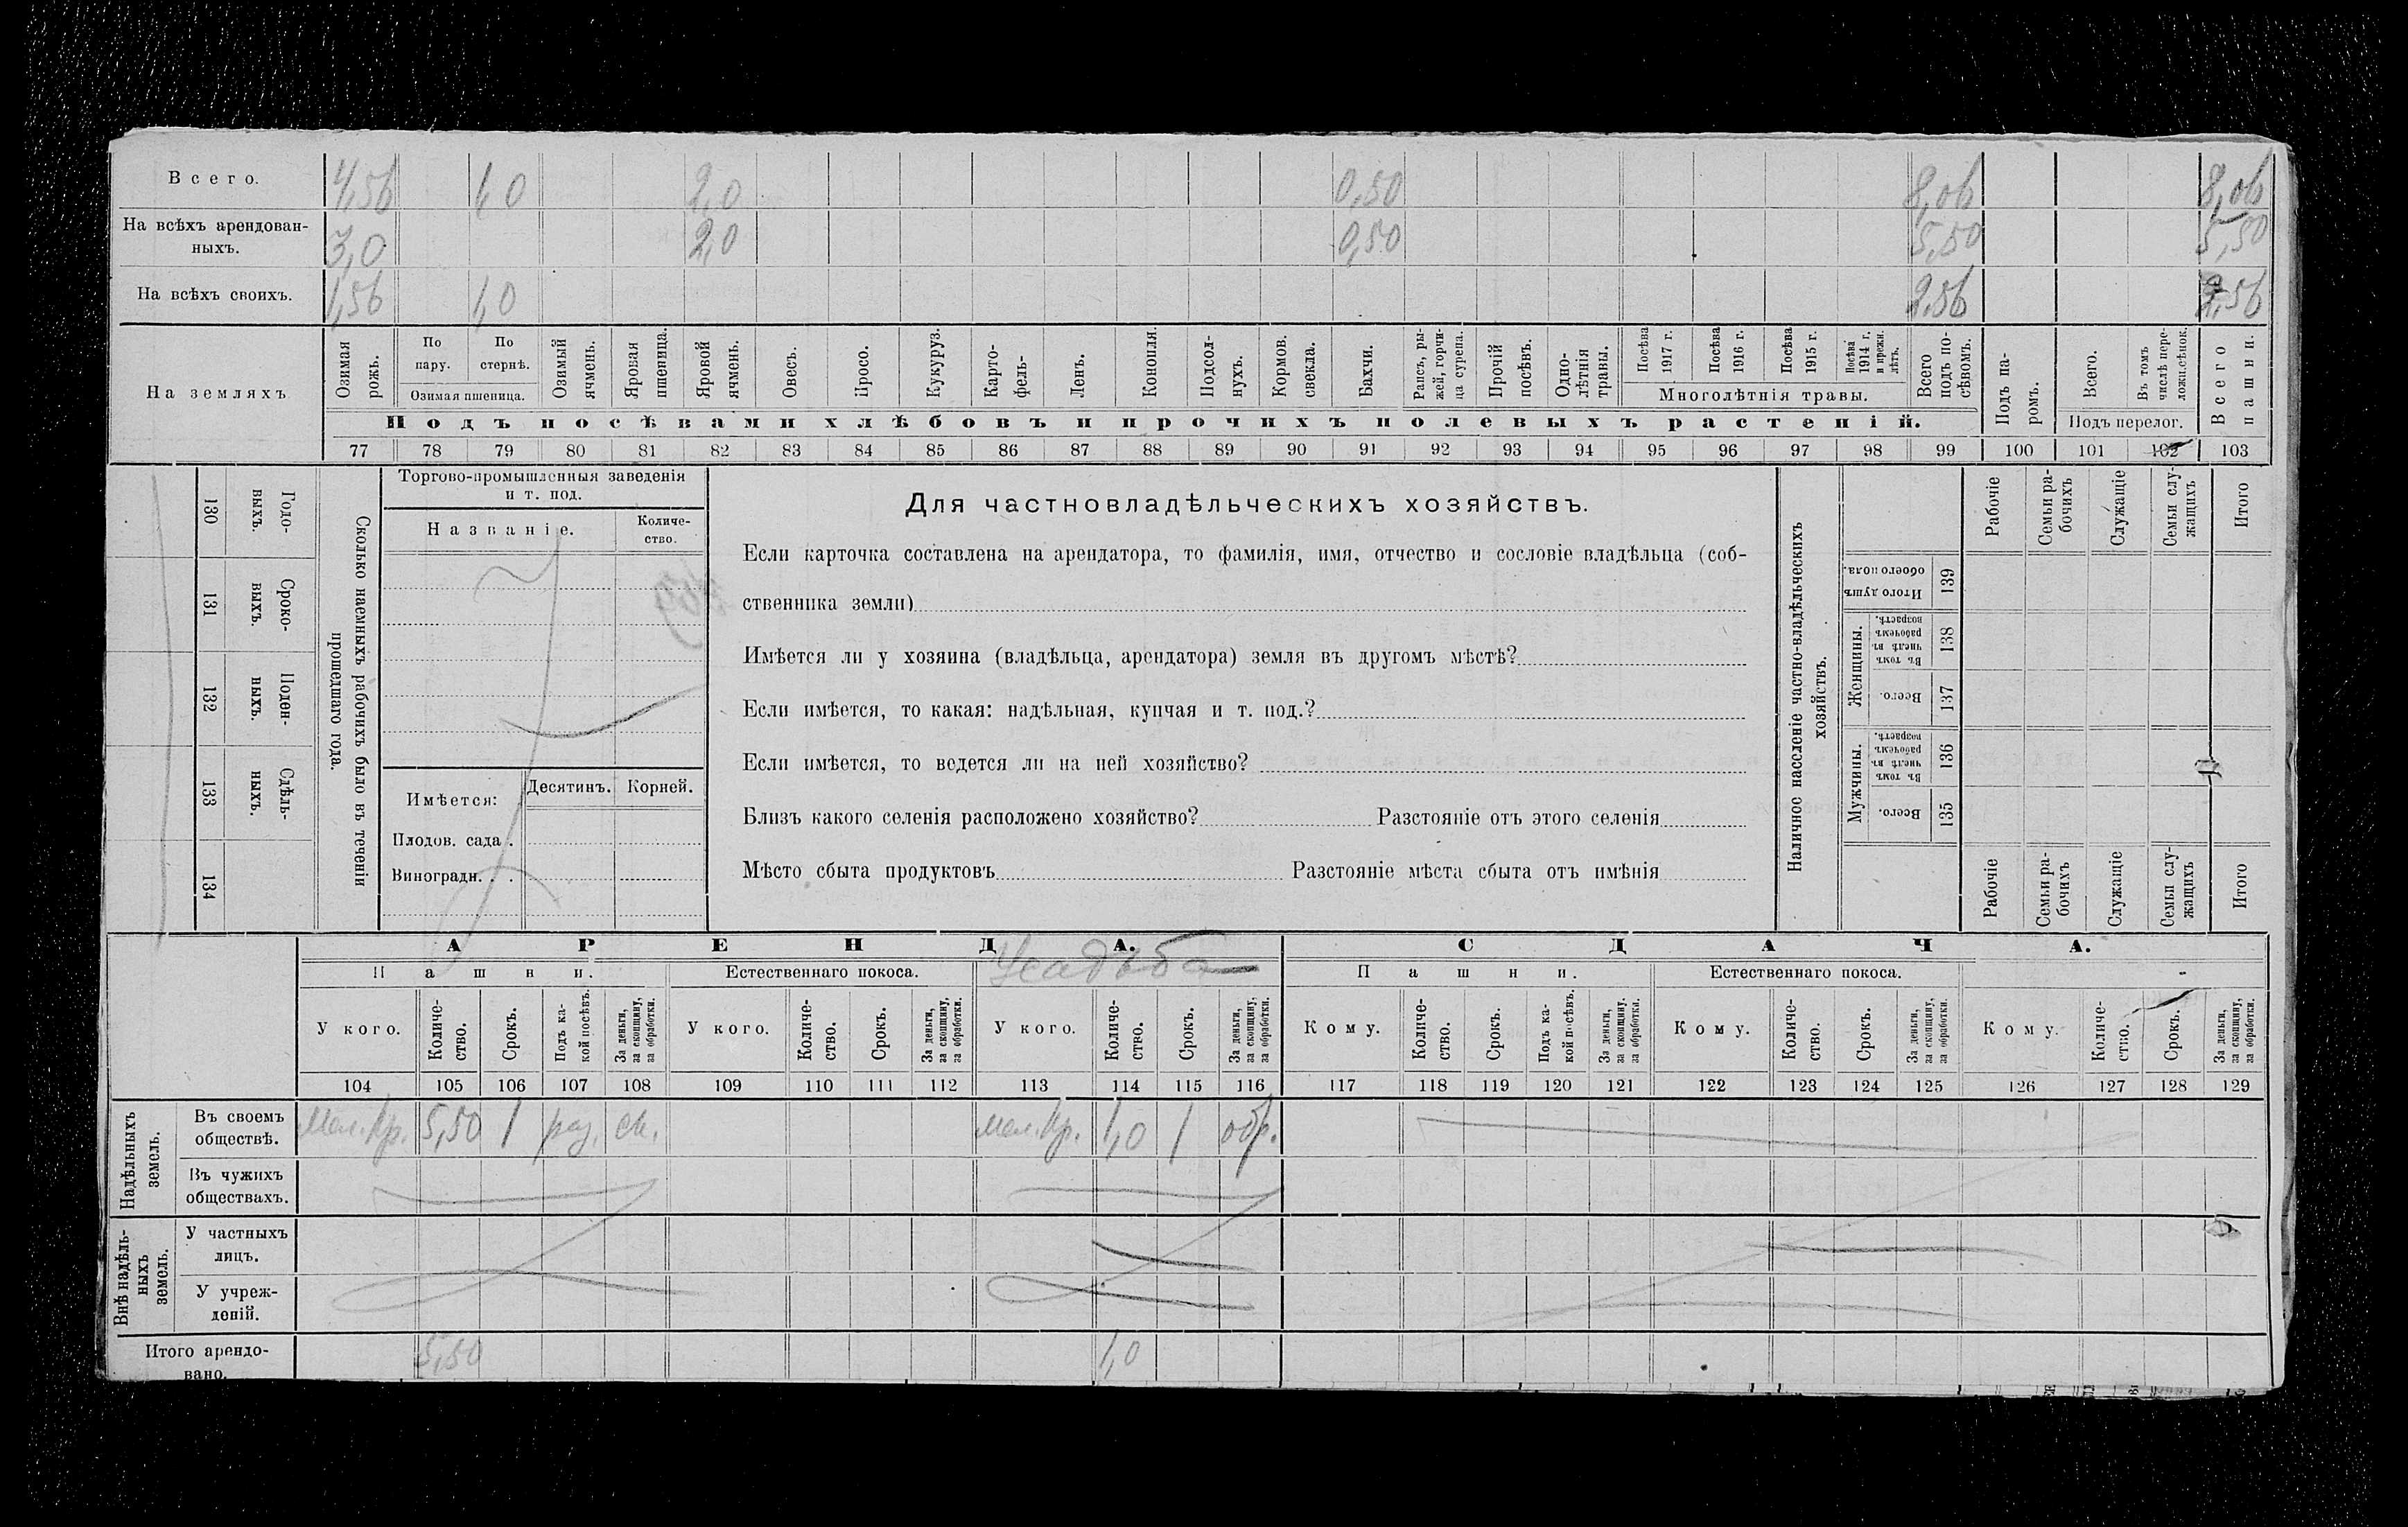 Всего. 4,56 1,0 2,0 0,50 8,06 8,06
На всѣхъ арендован-
ныхъ. 3,0 2,0 0,50 5,50 5,50
На всѣхъ своихъ. 1,56 1,0 2,56 2,56
На земляхъ
Озимая рожь.
По пару.
По стернѣ.
Озимая пшеница.
Озимый ячмень.
Яровая пшеница.
Яровой ячмень.
Овесъ.
Просо.
Кукуруз.
Карто-
фель-
Ленъ.
Конопля.
Подсол-
нухъ.
Кормов.
свекла.
Бахчи.
Рапсъ, ры-
жей, горчи-
ца сурепа.
Прочій
посѣвъ.
Одно-
лѣтнія
травы.
Посѣва 1917 г.
Посѣва 1916 г.
Посѣва 1915 г.
Посѣва 1914 г. и прежн. лѣтъ.
Многолѣтнія травы.
Всего
подъ по-
сѣвомъ.
Подъ па-
ромъ.
Всего.
Въ томъ
числѣ пере-
лож.сѣнок.
Подъ перелог.
Всего
пашни.
Подъ посѣвами хлѣбовъ и прочихъ полевыхъ растеній.
77 78 79 80 81 82 83 84 85 86 87 88 89 90 91 92 93 94 95 96 97 98 99 100 101 102 103
Годо-
выхъ.
130
Сроко-
ныхъ.
131
Поден-
ныхъ.
132
Сдѣль-
ныхъ.
133
134
Сколько наемныхъ рабочихъ было въ теченіи
прошедшаго года.
Торгово-промышленныя заведенія
и т. под.
Названіе.
Количе-
ство.
Имѣется:
Десятинъ. Корней.
Плодов. сада .
Виноградн. . .
Для частновладѣльческихъ хозяйствъ.
Если карточка составлена на арендатора, то фамилія, имя, отчество и сословіе владѣльца (соб-
ственника земли)
Имѣется ли у хозяина (владѣльца, арендатора) земля въ другомъ мѣстѣ?
Если имѣется, то какая: надѣльная, купчая и т. под.?
Если имѣется, то ведется ли на ней хозяйство?
Близъ какого селенія расположено хозяйство? Разстояніе отъ этого селенія
Мѣсто сбыта продуктовъ Разстояніе мѣста сбыта отъ имѣнія
Наличное населеніе частно-владѣльческихъ
хозяйствъ.
Рабочіе
Семьи ра-
бочихъ
Служащіе
Семьи слу-
жащихъ
Итого
Итого душъ
обоего пола.
139
Женщины.
Въ томъ
числѣ въ
рабочемъ
возрастѣ.
138
Всего.
137
Мужчины.
Въ томъ
числѣ въ
рабочемъ
возрастѣ.
136
Всего.
135
Рабочіе
Семьи ра-
бочихъ
Служащіе
Семьи слу-
жащихъ
Итого
АРЕНДА. СДАЧА.
Пашни. Естественнаго покоса. Усадьба Пашни. Естественнаго покоса.
У кого.
Количе-
ство.
Срокъ.
Подъ ка-
кой посѣвъ.
За деньги,
за скопщину,
за обработки.
У кого.
Количе-
ство.
Срокъ.
За деньги,
за скопщину,
за обработки.
У кого.
Количе-
ство.
Срокъ.
За деньги,
за скопщину,
за обработки.
Кому.
Количе-
ство.
Срокъ.
Подъ ка-
кой посѣвъ.
За деньги,
за скопщину,
за обработки.
Кому.
Количе-
ство.
Срокъ.
За деньги,
за скопщину,
за обработки.
Кому.
Количе-
ство.
Срокъ.
За деньги,
за скопщину,
за обработки.
104 105 106 107 108 109 110 111 112 113 114 115 116 117 118 119 120 121 122 123 124 125 126 127 128 129
Надѣльныхъ
земель.
Въ своемъ
обществѣ. Мел. Кр. 5,50 1 раз. ск. мел. Кр. 1,0 1 обр.
Въ чужихъ
обществахъ.
Внѣ надѣль-
ныхъ
земель.
У частныхъ
лицъ.
У учреж-
деній.
Итого арендо-
вано. 5,50 1,0